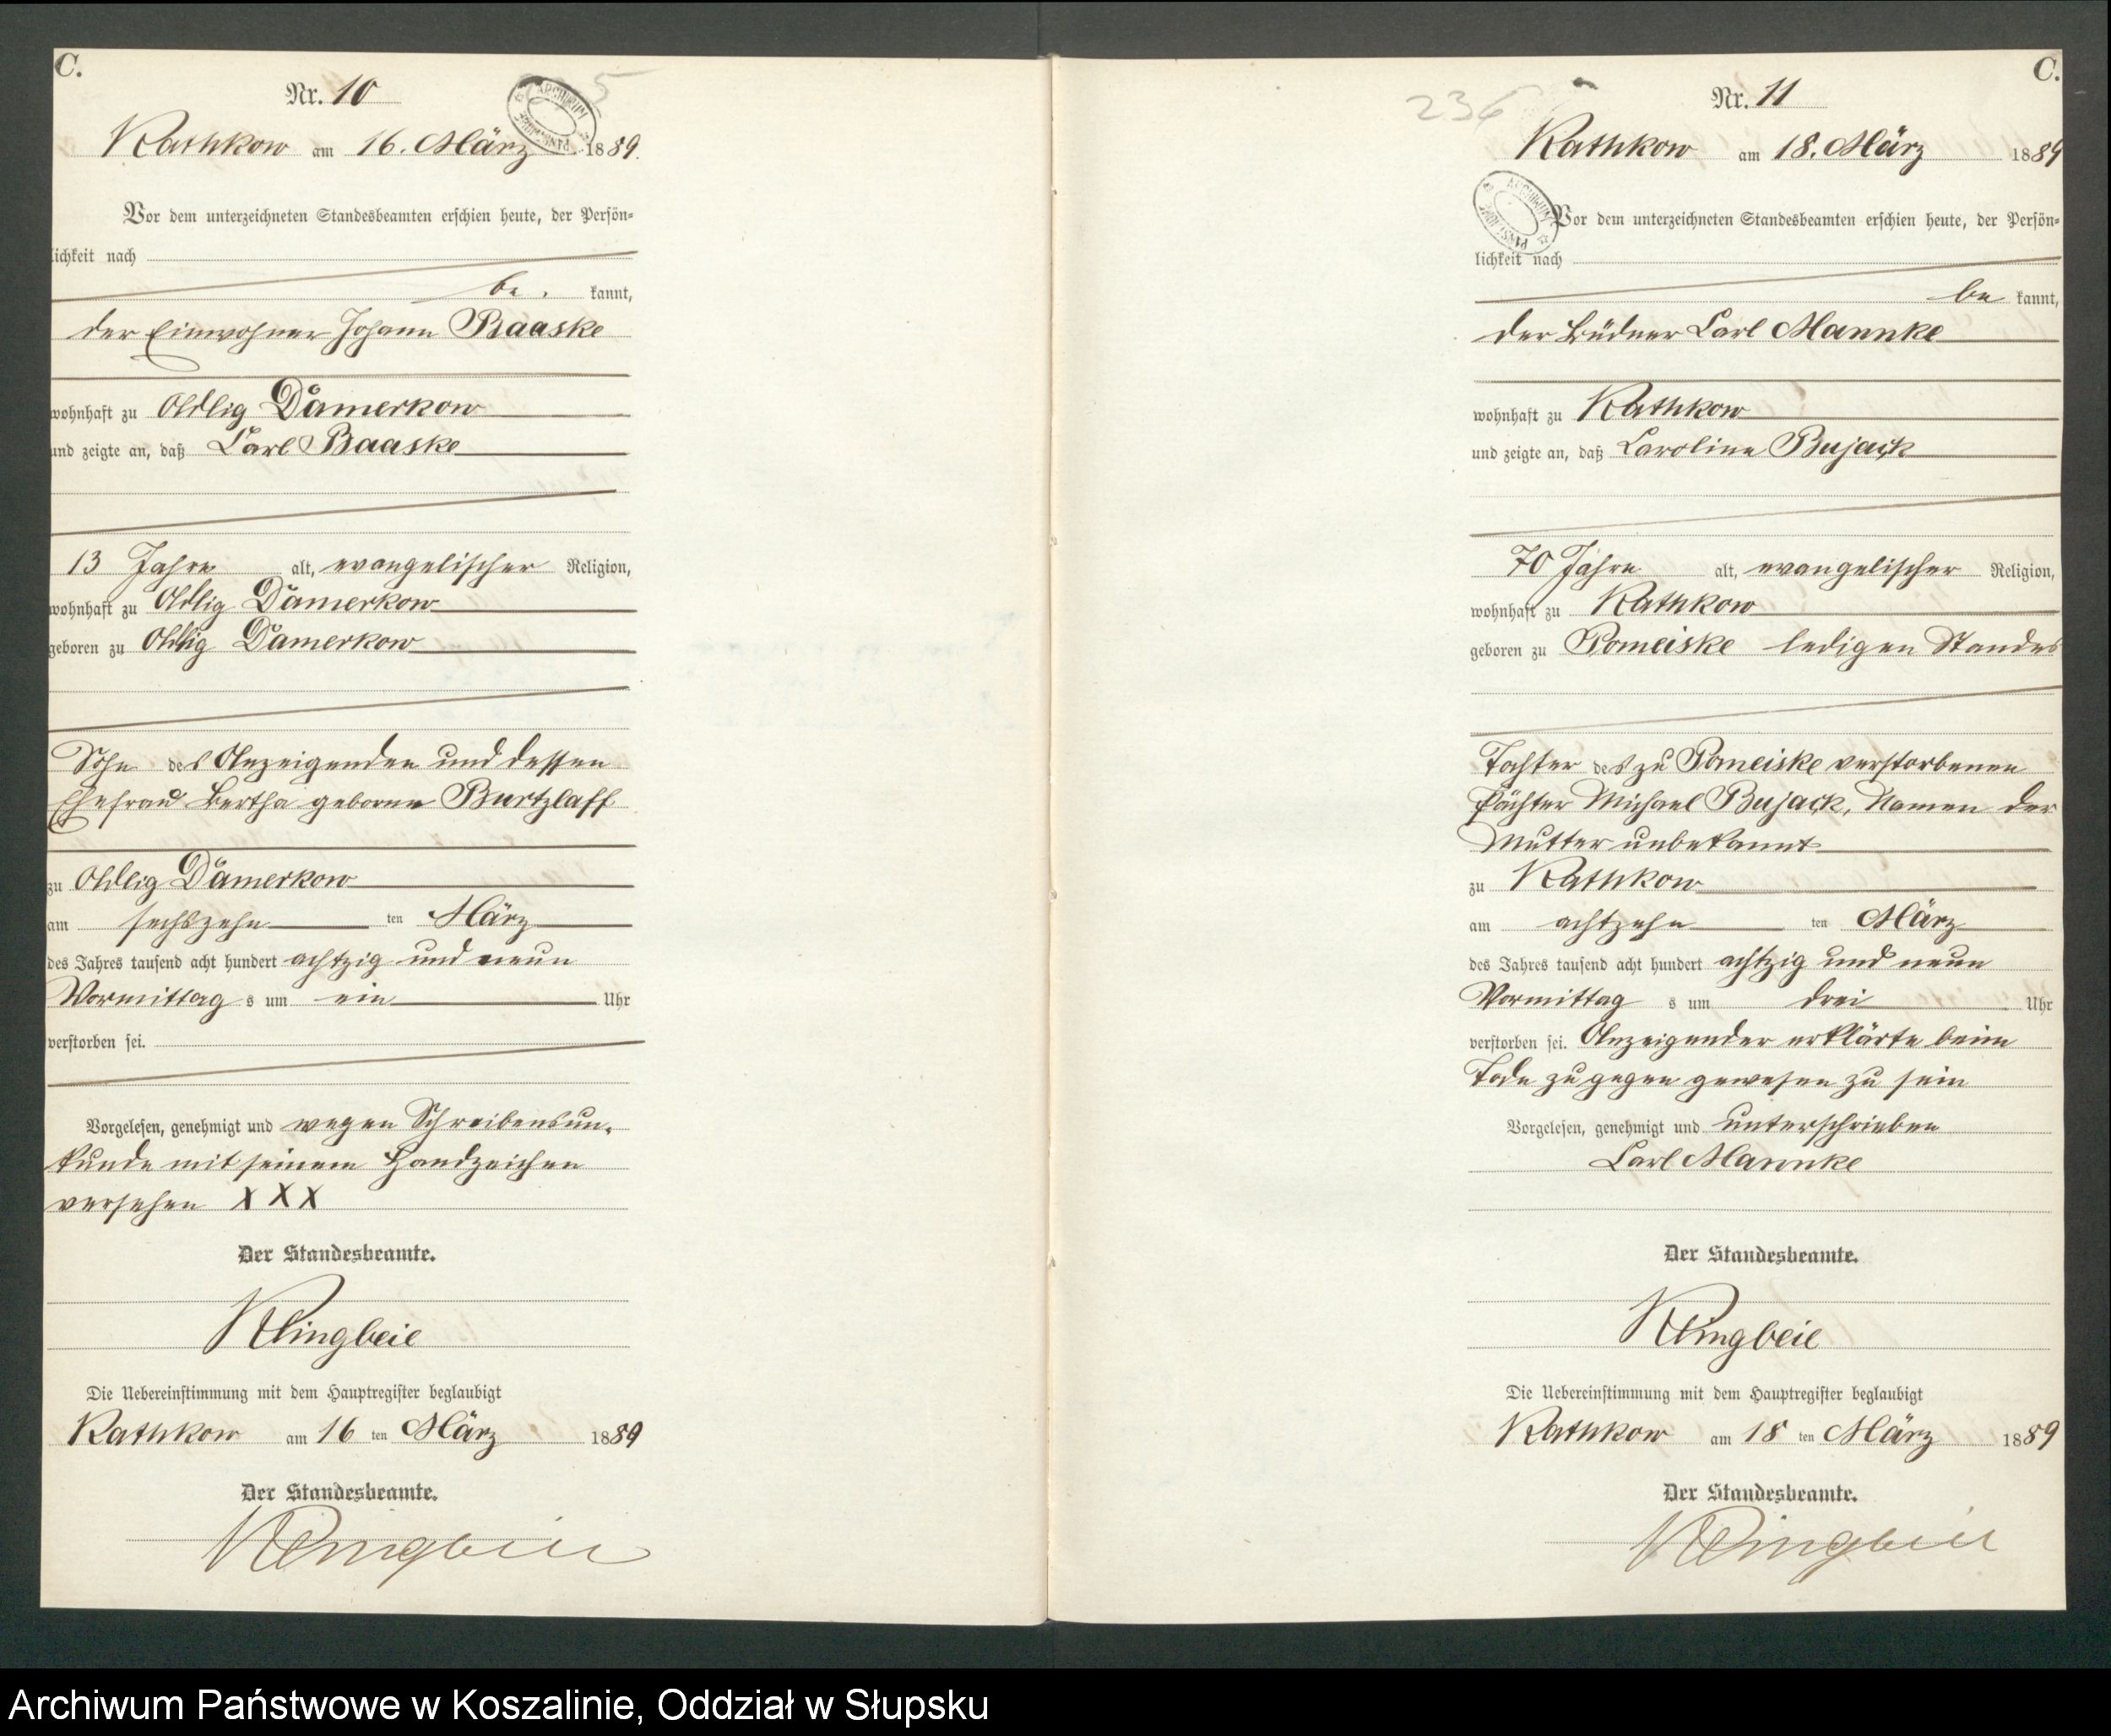 C.
Nr. 10
5
ARCHIWUM
Rathkow am 16. März 1889.
Vor dem unterzeichneten Standesbeamten erschien heute, der Persön=
lichkeit nach
be kannt,
der Einwohner Johann Baaske
wohnhaft zu Adlig Damerkow
und zeigte an, daß Carl Baaske
13 Jahre alt, evangelischer Religion,
wohnhaft zu Adlig Damerkow
geboren zu Adlig Damerkow
Sohn des Anzeigenden und dessen
Ehefrau Bertha geborne Burtzlaff
zu Adlig Damerkow
am sechszehn ten März
des Jahres tausend acht hundert achtzig und neun
Vormittag s um ein Uhr
verstorben sei.
Vorgelesen, genehmigt und wegen Schreibensun-
kunde mit seinem Handzeichen
versehen X X X
Der Standesbeamte.
Klingbeil
Die Uebereinstimmung mit dem Hauptregister beglaubigt
Rathkow am 16 ten März 1889
Der Standesbeamte.
Klingbeil
C.
Nr. 11
236
Rathkow am 18. März 1889
ARCHIWUM
Vor dem unterzeichneten Standesbeamten erschien heute, der Persön=
lichkeit nach
be kannt,
der Büdner Carl Mannke
wohnhaft zu Rathkow
und zeigte an, daß Caroline Bujack
70 Jahre alt, evangelischer Religion,
wohnhaft zu Rathkow
geboren zu Pomeiske ledigen Standes
Tochter des zu Pomeiske verstorbenen
Pächter Michael Bujack, Namen der
Mutter unbekannt
zu Rathkow
am achtzehn ten März
des Jahres tausend acht hundert achtzig und neun
Vormittag s um drei Uhr
verstorben sei. Anzeigender erklärte beim
Tode zugegen gewesen zu sein
Vorgelesen, genehmigt und unterschrieben
Carl Mannke
Der Standesbeamte.
Klingbeil
Die Uebereinstimmung mit dem Hauptregister beglaubigt
Rathkow am 18 ten März 1889
Der Standesbeamte.
Klingbeil
Archiwum Państwowe w Koszalinie, Oddział w Słupsku